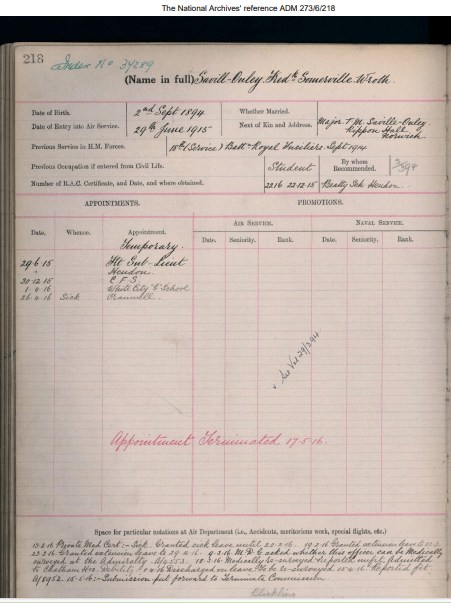 The National Archives' reference ADM 273/6/218
218
Index No 34289
(Name in full) Savill-Onley, Fredk Somerville Wroth.
Date of Birth. 2nd Sept 1894 Whether Married.
Date of Entry into Air Service. 29th June 1915 Next of Kin and Address. Major T. M. Saville-Onley.
Rippon Hall
Norwich
Previous Service in H.M. Forces. 18th (Service) Battn Royal Fusiliers. Sept 1914
Previous Occupation if entered from Civil Life. Student By whom Recommended.
Number of R.A.C. Certificate, and Date, and where obtained. 2216 22-12-15 Beatty Sch Hendon.
APPOINTMENTS. PROMOTIONS.
AIR SERVICE. NAVAL SERVICE.
Date. Whence. Appointment. Date. Seniority. Rank. Date. Seniority. Rank.
Temporary.
29.6.15 Flt Sub-Lieut
" Hendon
30.12.15 C F S
1.4.16 White City School
26.4.16 Sick Cranwell.
See Vol 29/294
Appointment Terminated 17.5.16.
Space for particular notations at Air Department (i.e., Accidents, meritorious work, special flights, etc.)
13.2.16 Private Med Cert:- Sick. Granted sick leave until 20.2.16. 19.2.16 Granted extension leave to
23.2.16 Granted extension leave to 29.2.16. 9.3.16. M.D.G asked whether this officer can be Medically
surveyed at the Admiralty. 18.3.16 Medically re-surveyed reported unfit. Admitted
to Chatham Hos. Debility. Discharged on leave. To be re-surveyed Reported fit.
15.5.16:- Submission put forward to Terminate Commission.